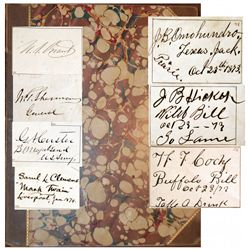 U.S. Grant
W.T. Sherman
General
G. A. Custer
U.S. Army
Saml. L. Clemens
Mark Twain
Liverpool, Jan. 1874
J. B. Omohundro
Texas Jack
Oct 28th 1873
J B Hickok
Wild Bill
Oct 28 — 73
So Same
W F Cody
Buffalo Bill
Oct 28/73
Take A Drink